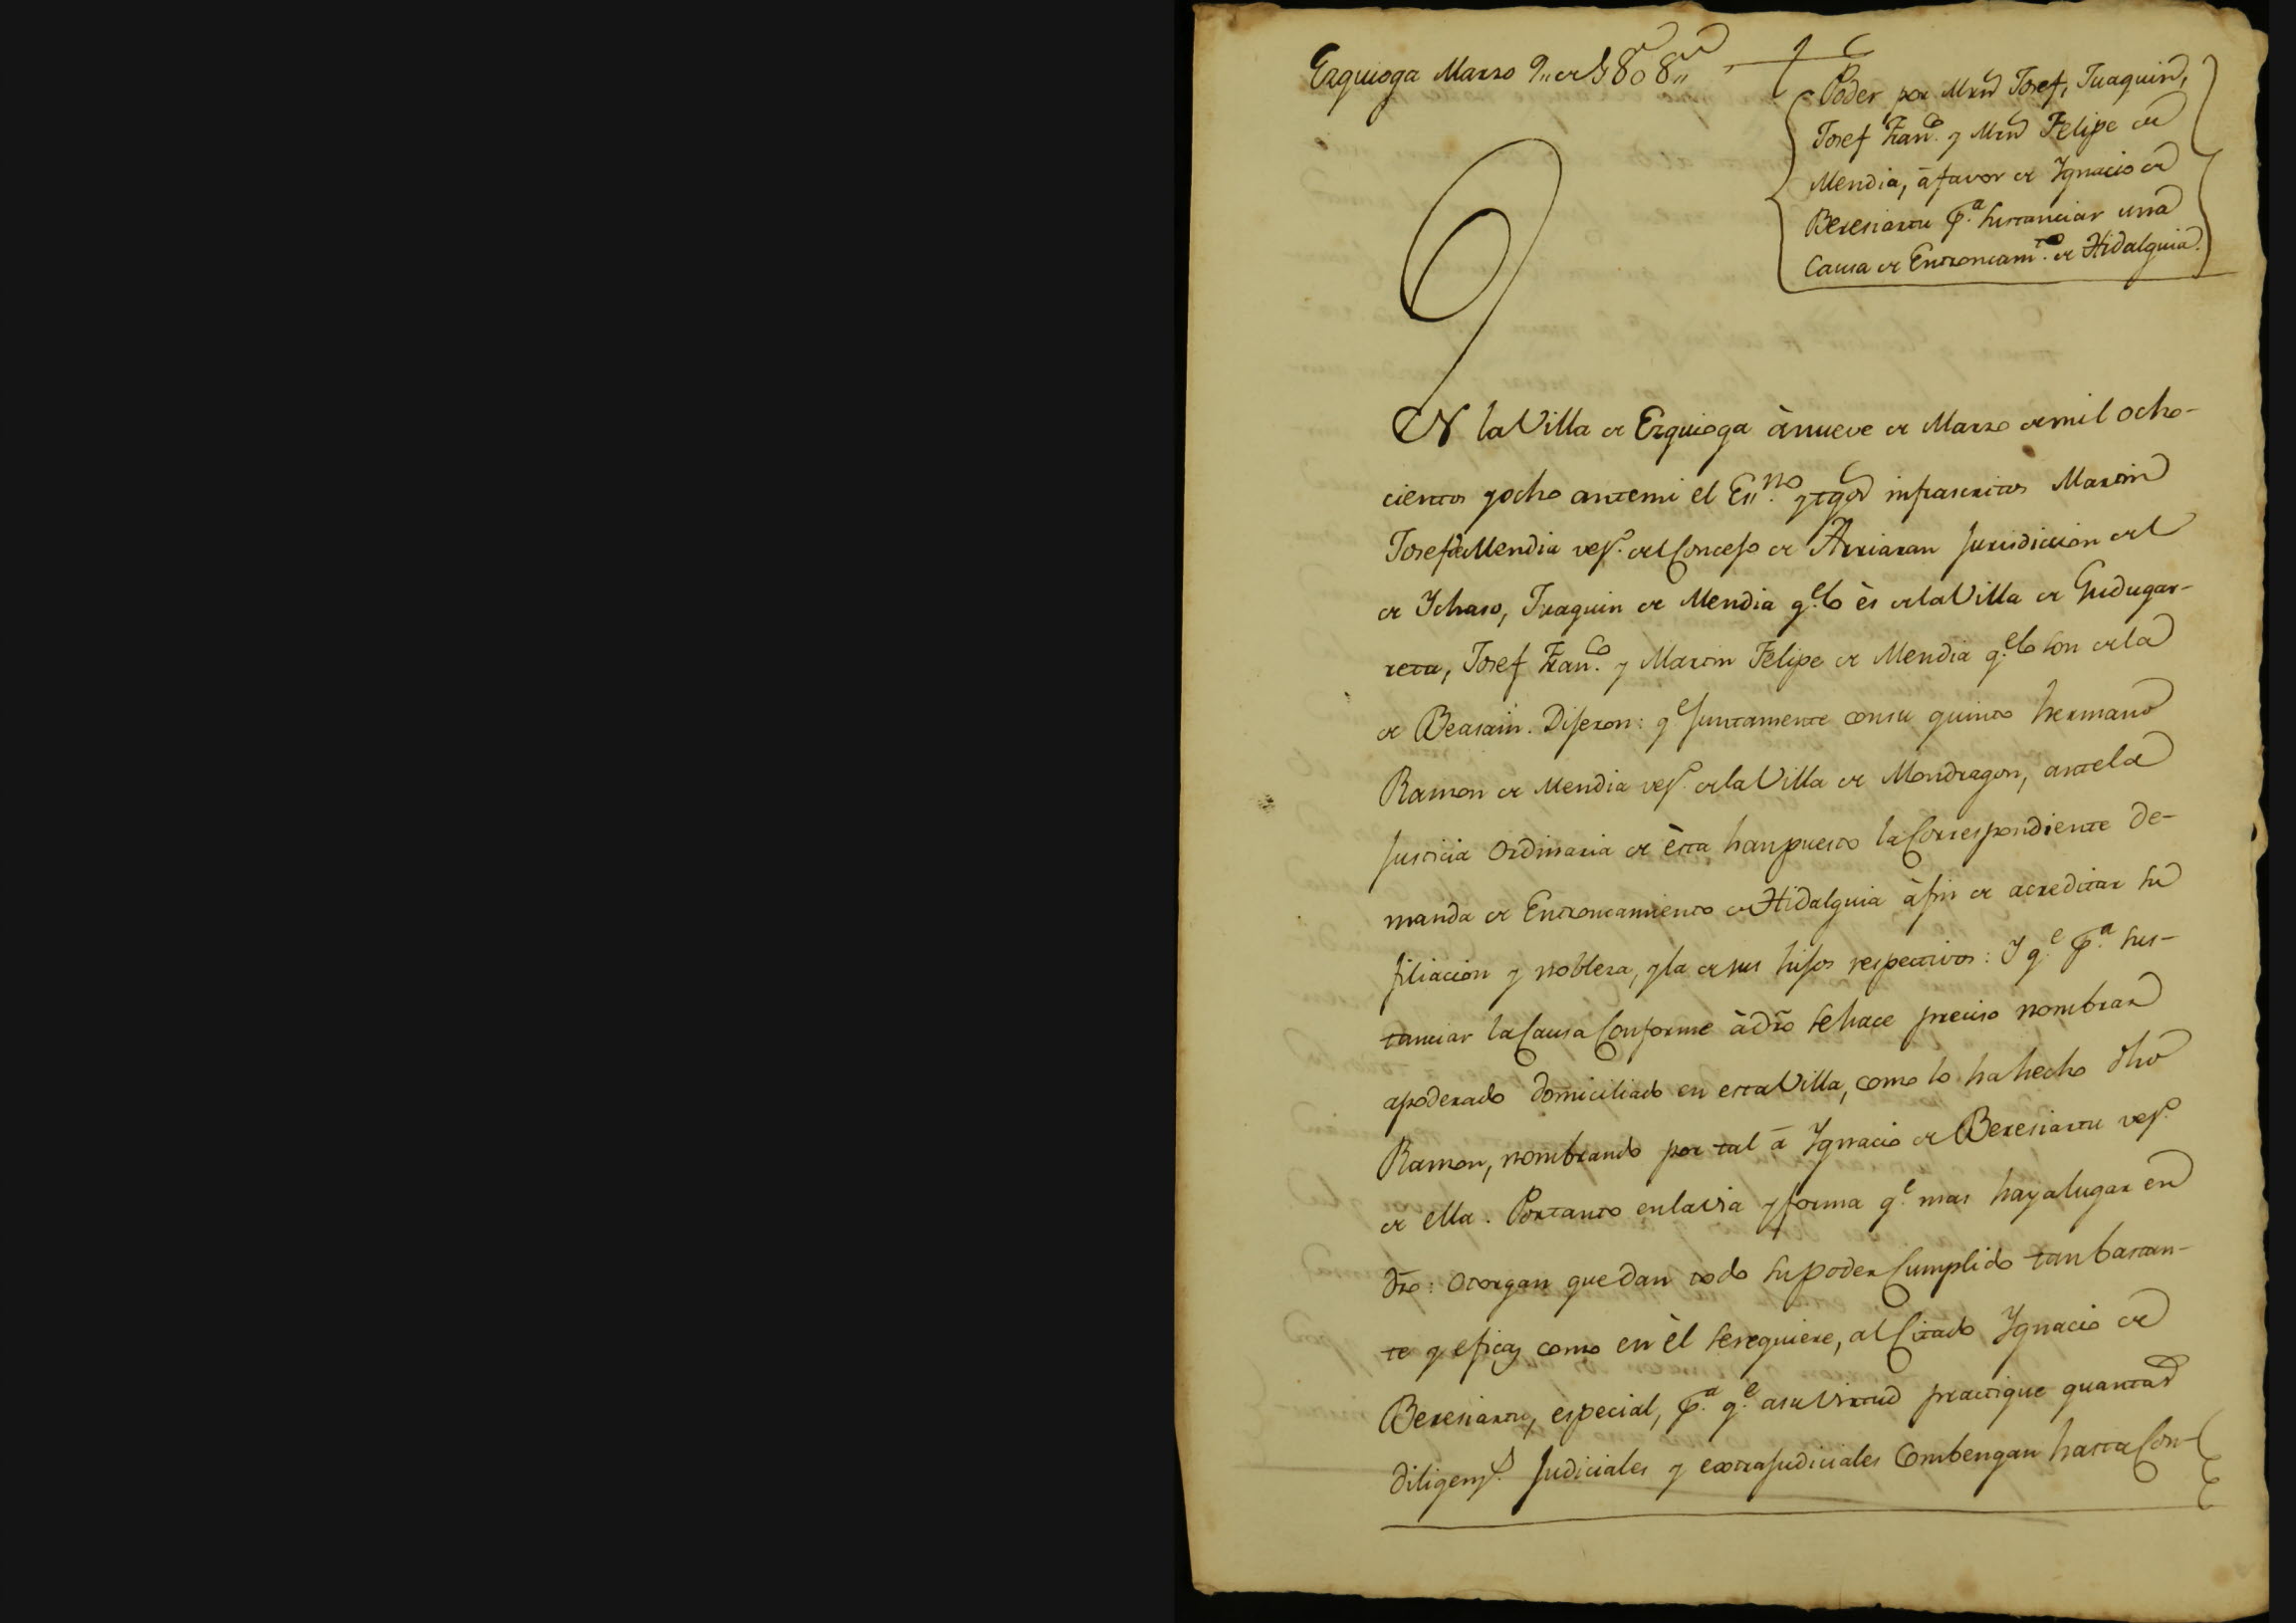 Ezquioga Marzo 9,, de 1808,,
Poder por Mrn Josef, Juaquin,
Josef Fran.co y Mrn Felipe de
Mendia, à favor de Ygnacio de
Beresiartu p.a sustanciar una
Causa de Entroncam.to de Hidalguia.
EN la Villa de Ezquioga à nueve de Marzo de mil ocho-
cientos y ocho ante mi el Es.no y tgos infrascritos Martin
Josef de Mendia vez.o del Concejo de Arriaran Jurisdiccion del
de Ychaso, Juaquin de Mendia q.e lo ès de la Villa de Gudugar-
reta, Josef Fran.co y Martin Felipe de Mendia q.e lo son de la
de Beasain. Dijeron: q.e juntamente con su quinto hermano
Ramon de Mendia vez.o de la Villa de Mondragon, ante la
Justicia Ordinaria de èsta han puesto la Correspondiente de-
manda de Entroncamiento de Hidalguia à fin de acreditar su
filiacion y nobleza, y la de sus hijos respectivos: Y q.e p.a sus-
tanciar la Causa Conforme à dro se hace preciso nombrar
apoderado domiciliado en esta Villa, como lo ha hecho dho
Ramon, nombrando por tal à Ygnacio de Beresiartu vez.o
de ella. Por tanto en la via y forma q.e mas haya lugar en
dro: Otorgan que dan todo su poder Cumplido tan bastan-
te y eficaz como en èl se requiere, al Citado Ygnacio de
Beresiartu, especial, p.a q.e a su Virtud practique quantas
diligenz.s Judiciales y extrajudiciales Combengan hasta Con-